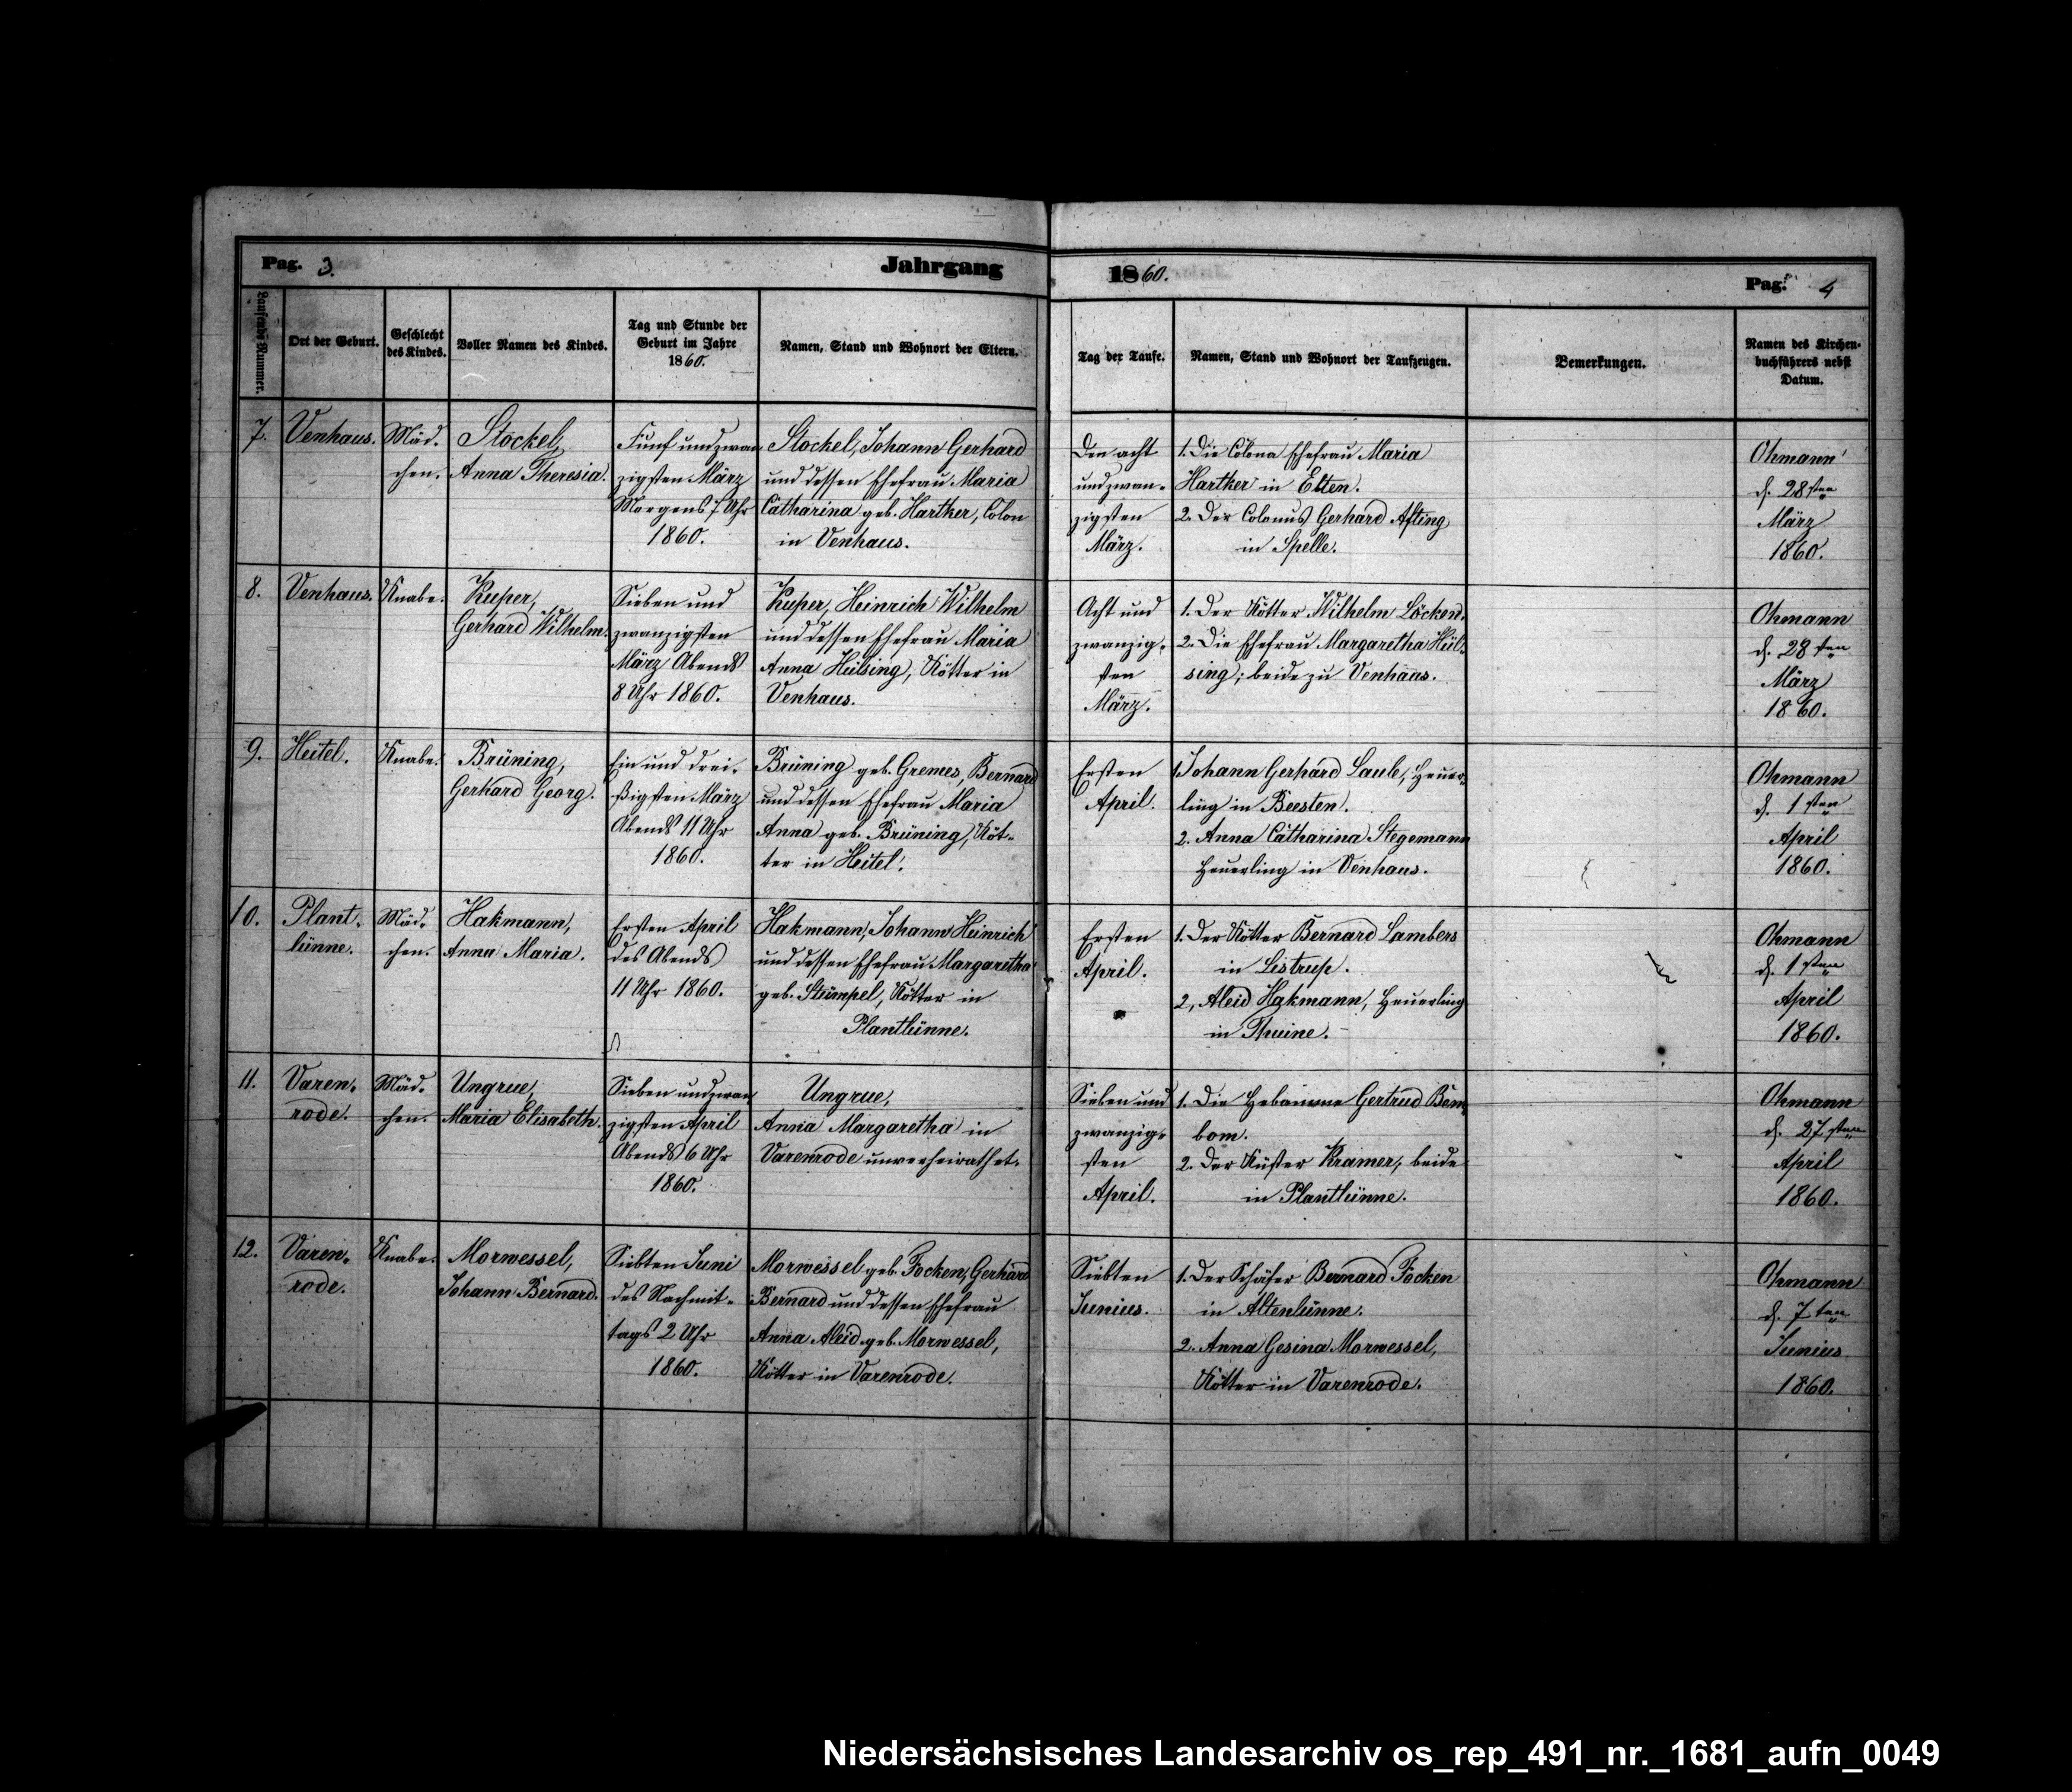 Pag. 3.
Jahrgang
1860.
Pag. 4
Laufende Nummer.
Ort der Geburt.
Geschlecht
des Kindes.
Voller Namen des Kindes.
Tag und Stunde der
Geburt im Jahre
1860.
Namen, Stand und Wohnort der Eltern.
Tag der Taufe.
Namen, Stand und Wohnort der Taufzeugen.
Bemerkungen.
Namen des Kirchen-
buchführers nebst
Datum.
7.
Venhaus.
Mäd-
chen.
Stockel,
Anna Theresia.
Fünf und zwan
zigsten März
Morgens 7 Uhr
1860.
Stockel, Johann Gerhard
und dessen Ehefrau Maria
Catharina geb. Hartker, Colon
in Venhaus.
Den acht
und zwan-
zigsten
März.
1. Die Colona Ehefrau Maria
Hartker in Elten.
2. Der Colonus Gerhard Afting
in Spelle.
Ohmann
d. 28sten
März
1860.
8.
Venhaus.
Knabe.
Kuper,
Gerhard Wilhelm.
Sieben und
zwanzigsten
März Abends
8 Uhr 1860.
Kuper, Heinrich Wilhelm
und dessen Ehefrau Maria
Anna Hülsing, Kötter in
Venhaus.
Acht und
zwanzig-
sten
März.
1. Der Kötter Wilhelm Löcken.
2. Die Ehefrau Margaretha Hül-
sing; beide zu Venhaus.
Ohmann
d. 28sten
März
1860.
9.
Heitel.
Knabe.
Brüning,
Gerhard Georg.
Ein und drei-
ßigsten März
Abends 11 Uhr
1860.
Brüning geb. Gremes, Bernard
und dessen Ehefrau Maria
Anna geb. Brüning, Köt-
ter in Heitel.
Ersten
April.
1. Johann Gerhard Laub, Heuer-
ling in Beesten.
2. Anna Catharina Stegemann
Heuerling in Venhaus.
Ohmann
d. 1sten
April
1860.
10.
Plant-
lünne.
Mäd-
chen.
Hakmann,
Anna Maria.
Ersten April
des Abends
11 Uhr 1860.
Hakmann, Johann Heinrich
und dessen Ehefrau Margaretha
geb. Stümpel, Kötter in
Plantlünne.
Ersten
April.
1. Der Kötter Bernard Lambers
in Listrup.
2, Aleid Hakmann, Heuerling
in Thuine.
Ohmann
d. 1sten
April
1860.
11.
Varen-
rode.
Mäd-
chen.
Ungrue,
Maria Elisabeth.
Sieben und zwan
zigsten April
Abends 6 Uhr
1860.
Ungrue,
Anna Margaretha in
Varenrode unverheirathet.
Sieben und
zwanzig-
sten
April.
1. Die Hebamme Gertrud Bem-
bom.
2. Der Küster Kramer, beide
in Plantlünne.
Ohmann
d. 27sten
April
1860.
12.
Varen-
rode.
Knabe.
Morwessel,
Johann Bernard.
Siebten Juni
des Nachmit-
tags 2 Uhr
1860.
Morwessel geb. Focken, Gerhard
Bernard und dessen Ehefrau
Anna Aleid geb. Morwessel,
Kötter in Varenrode.
Siebten
Junius.
1. Der Schäfer Bernard Focken
in Altenlünne.
2. Anna Gesina Morwessel,
Kötter in Varenrode.
Ohmann
d. 7ten
Junius
1860.
Niedersächsisches Landesarchiv os_rep_491_nr._1681_aufn_0049